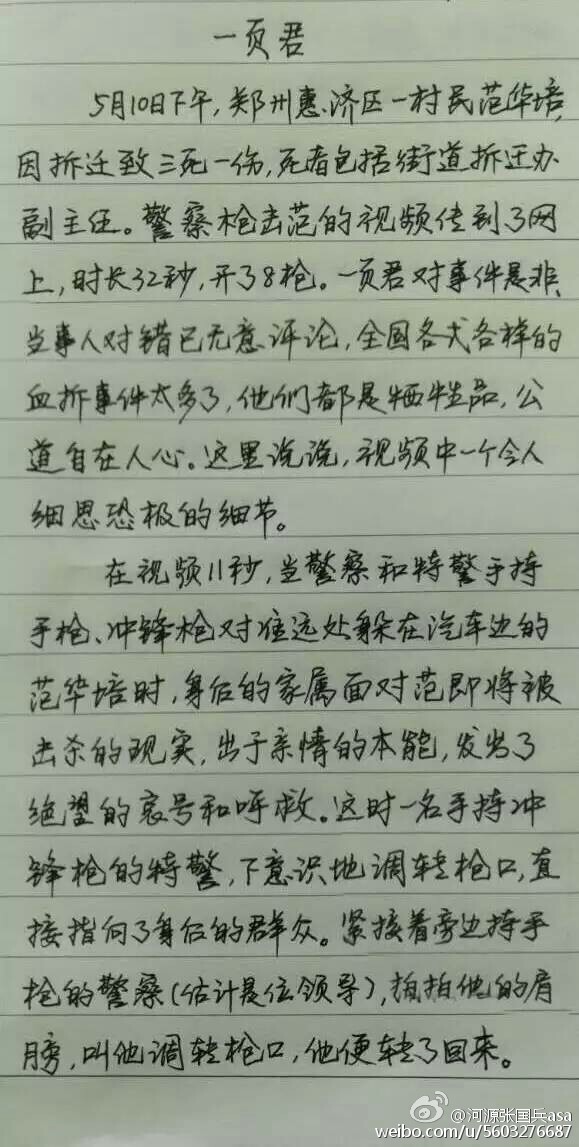 一页君
5月10日下午,郑州惠济区一村民范华培,
因拆迁致三死一伤,死者包括街道拆迁办
副主任。警察枪击范的视频传到了网
上,时长32秒,开了8枪。一页君对事件是非、
当事人对错已无意评论,全国各式各样的
血拆事件太多了,他们都是牺牲品,公
道自在人心。这里说说,视频中一个令人
细思恐极的细节。
在视频11秒,当警察和特警手持
手枪、冲锋枪对准远处躲在汽车边的
范华培时,身后的家属面对范即将被
击杀的现实,出于亲情的本能,发出了
绝望的哀号和呼救。这时一名手持冲
锋枪的特警,下意识地调转枪口,直
接指向了身后的群众。紧接着旁边持手
枪的警察(估计是位领导),拍拍他的肩
膀,叫他调转枪口,他便转了回来。
@河源张国兵asa
weibo.com/u/5603276687